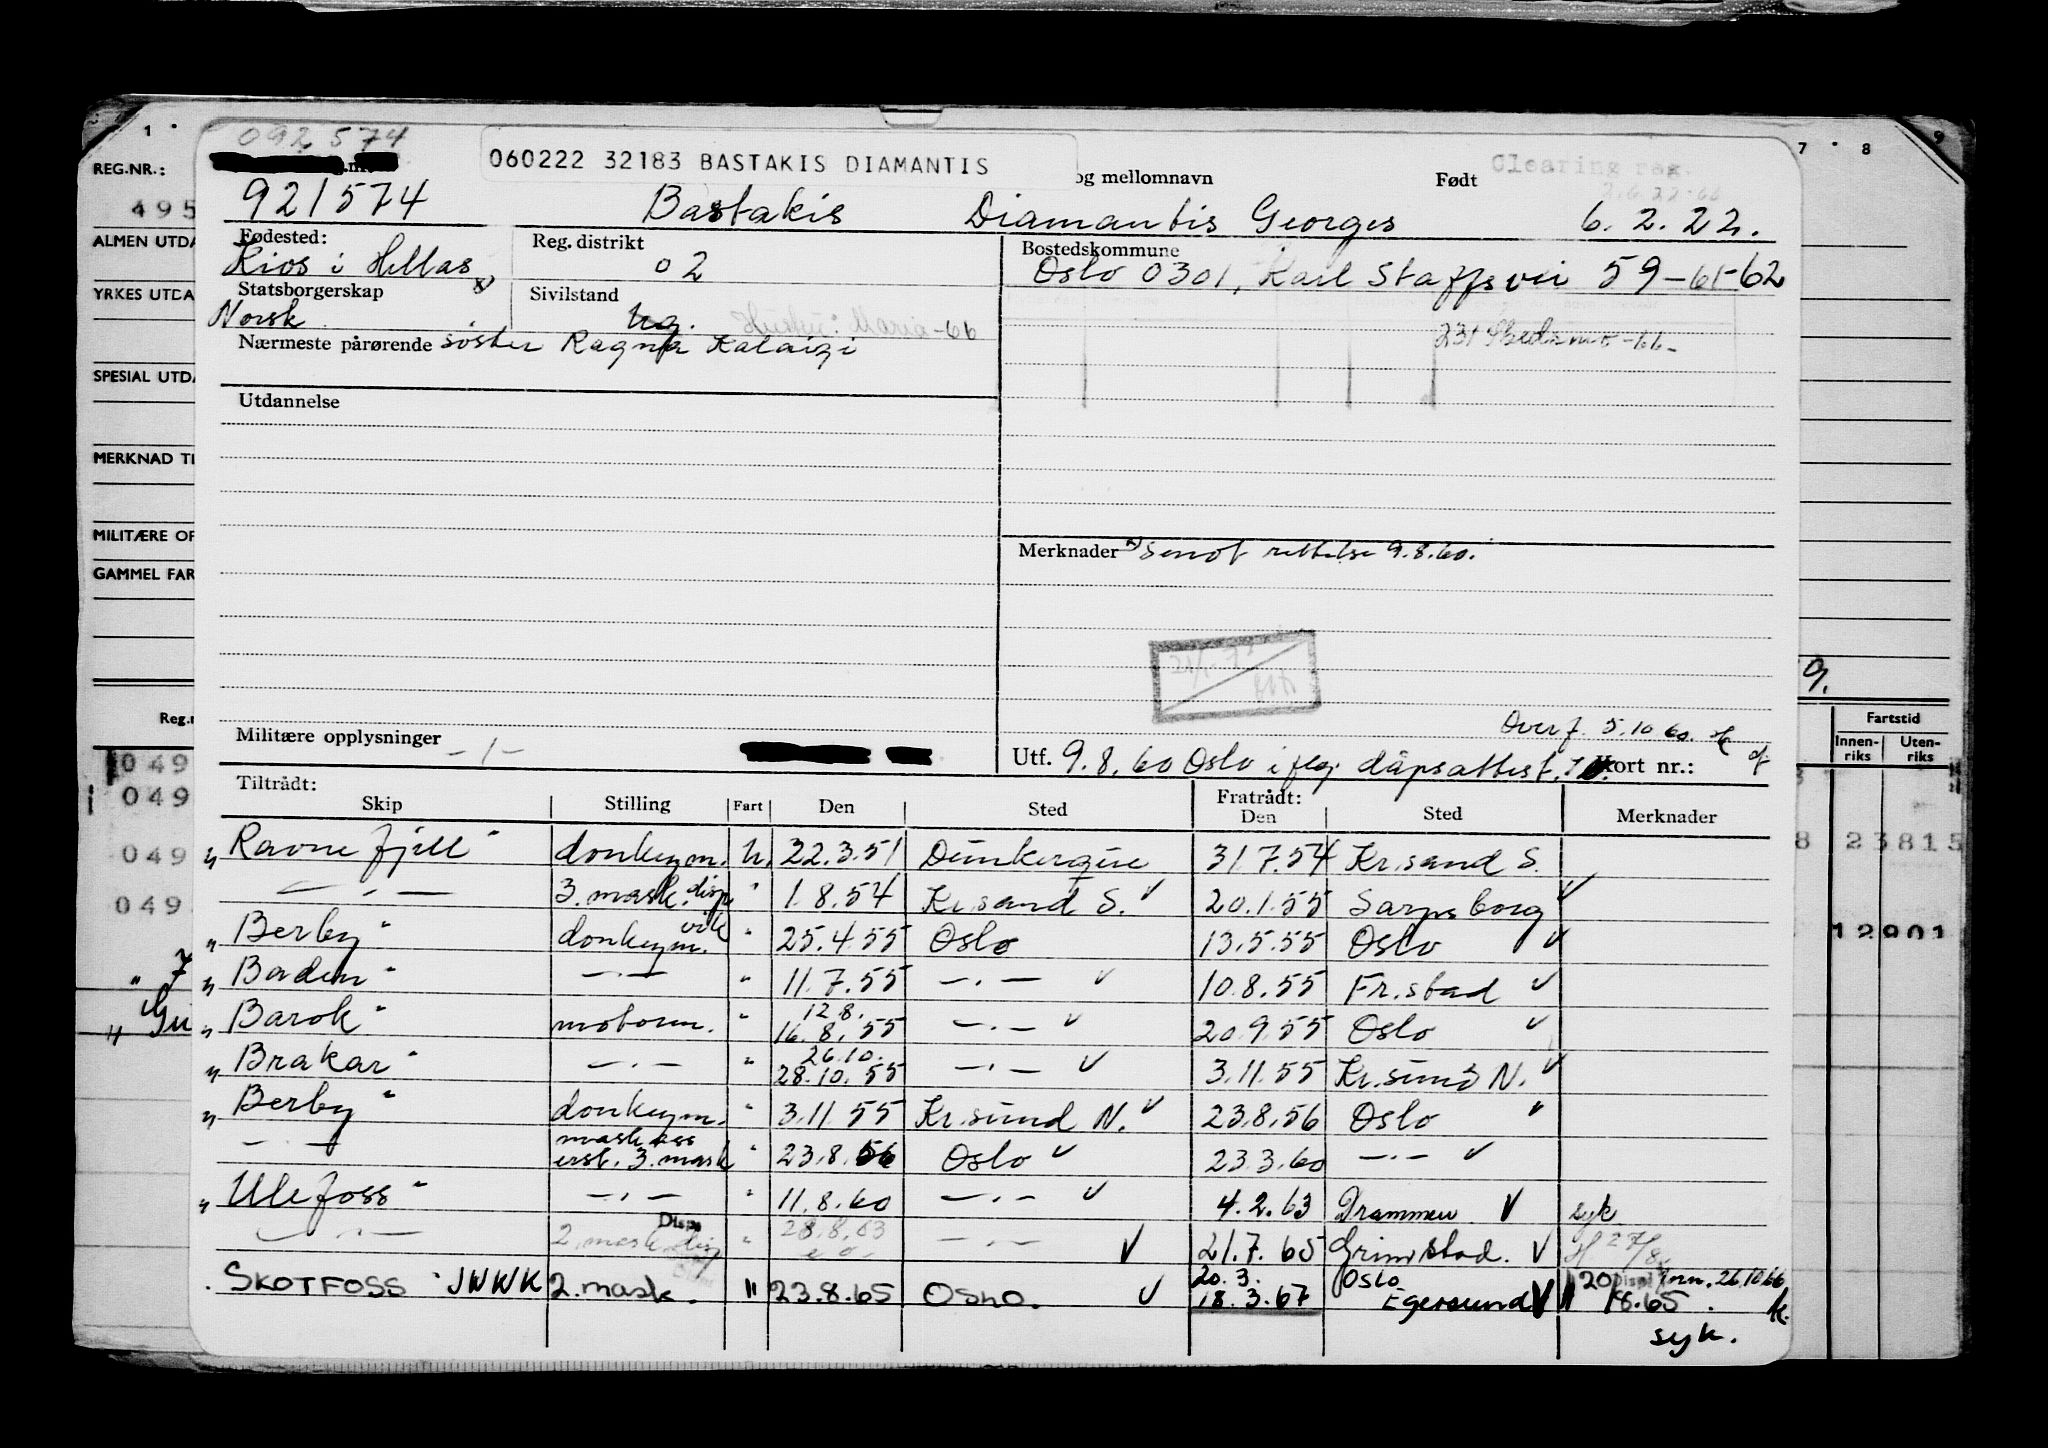 1 7 8 9
092574
REG.NR.: 060222 32183 BASTAKIS DIAMANTIS og mellomnavn Født Clearing reg.
495 921574 Bastakis Diamantis Georges 6.2.22.
ALMEN UTDA Fødested: Reg. distrikt Bostedskommune
Kios i Hellas x) 02 Oslo 0301, Karl Staffsvei 59-61-62
YRKES UTDA Statsborgerskap Sivilstand
Norsk ug. Hustru: Maria-66
Nærmeste pårørende søster Ragna Kalaizi 231 Skedsmo-66-
SPESIAL UTDA
Utdannelse
MERKNAD TI
MILITÆRE OP Merknader x) Smof rettelse 9.8.60.
GAMMEL FAR
Reg.n Fartstid
Overf. 5.10 60.
Militære opplysninger -1- Utf. 9.8.60 Oslo i flg. dåpsattest. Kort nr.: Innen-riks Uten-riks
049
Tiltrådt: Fratrådt:
Skip Stilling Fart Den Sted Den Sted Merknader
049
"Ravnefjell" donkeym. U. 22.3.51 Dunkerque 31.7.54 Kr.sand S. 8 23815
049
— . — 3. mask. disp " 1.8.54 Kr.sand S. ✓ 20.1.55 Sarpsborg ✓
049
"Berby" donkeym. vik " 25.4.55 Oslo 13.5.55 Oslo ✓ 12901
"Baden" — . — " 11.7.55 — . — ✓ 10.8.55 Fr.stad ✓
12.8.
"Barok" motorm. " 16.8.55 — . — ✓ 20.9.55 Oslo ✓
26.10.
"Brakar" — . — " 28.10.55 — . — ✓ 3.11.55 Kr.sund N. ✓
"Berby" donkeym. " 3.11.55 Kr.sund N. ✓ 23.8.56 Oslo "
mask ass
— . — erst. 3. mask " 23.8.56 Oslo ✓ 23.3.60 — . — ✓
"Ulefoss" — . — " 11.8.60 — . — ✓ 4.2.63 Drammen ✓ syk
Disp
— . — 2. mask. disp " 28.8.63 — . — ✓ 21.7.65 Grimstad. ✓
20.3. Oslo
SKOTFOSS" JWWK 2. mask. " 23.8.65 OSLO. ✓ 18.3.67 Egersund ✓ " 20/8.65. Disp. 26.10 66
syk.